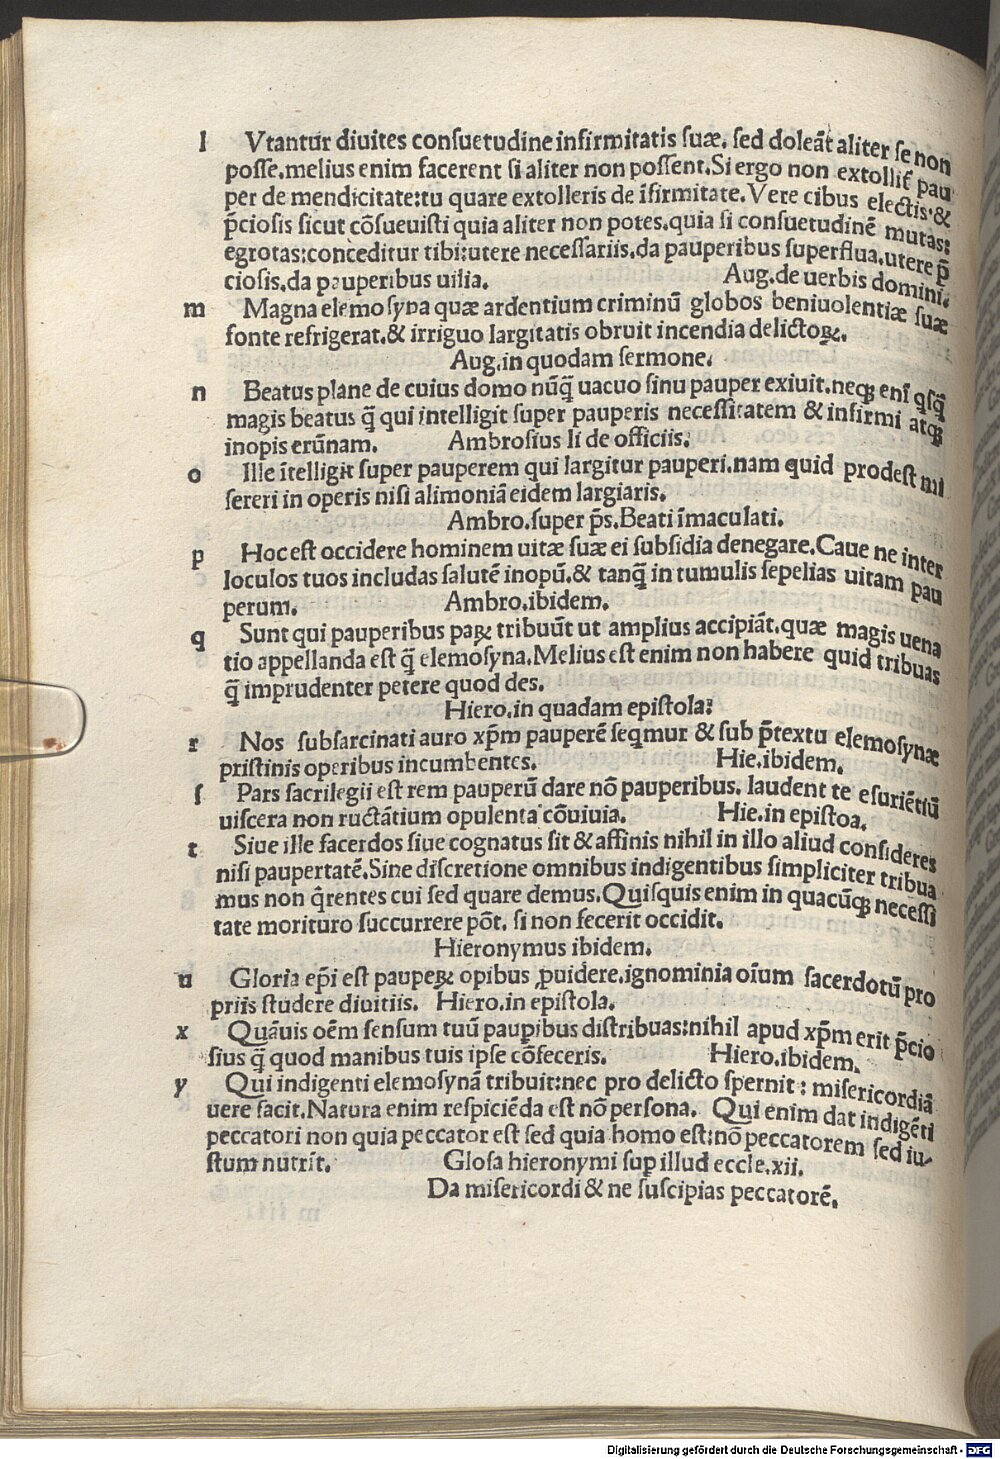 l Vtantur diuites conſuetudine infirmitatis ſuæ. ſed doleāt aliter ſe non
poſſe.melius enim facerent ſi aliter non poſſent.Si ergo non extollit̄ pau
per de mendicitate:tu quare extolleris de īfirmitate.Vere cibus electis &
p̄cioſis ſicut cōſueuiſti quia aliter non potes.quia ſi conſuetudinē mutas:
egrotas:conceditur tibi:utere neceſſariis.da pauperibus ſuperflua.utere p̄
cioſis.da pauperibus uilia. Aug.de uerbis domini.
m Magna elemoſyna quæ ardentium criminū globos beniuolentiæ ſuæ
fonte refrigerat.& irriguo largitatis obruit incendia delictoꝝ.
Aug.in quodam ſermone.
n Beatus plane de cuius domo nūq̄ uacuo ſinu pauper exiuit.neqꝫ enī qſq̄
magis beatus q̄ qui intelligit ſuper pauperis neceſſitatem & infirmi atqꝫ
inopis erūnam. Ambroſius li de officiis.
o Ille ītelligit ſuper pauperem qui largitur pauperi.nam quid prodeſt mi
ſereri in operis niſi alimoniā eidem largiaris.
Ambro.ſuper p̄s.Beati īmaculati.
p Hoc eſt occidere hominem uitæ ſuæ ei ſubſidia denegare.Caue ne inter
loculos tuos includas ſalutē inopū.& tanq̄ in tumulis ſepelias uitam pau
perum. Ambro.ibidem.
q Sunt qui pauperibus paꝝ tribuūt ut amplius accipiāt.quæ magis uena
tio appellanda eſt q̄ elemoſyna.Melius eſt enim non habere quid tribuas
q̄ imprudenter petere quod des.
Hiero.in quadam epiſtola:
r Nos ſubſarcinati auro xp̄m pauperē ſeqmur & ſub p̄textu elemoſynæ
priſtinis operibus incumbentes. Hie.ibidem.
ſ Pars ſacrilegii eſt rem pauperū dare nō pauperibus. laudent te eſuriētiū
uiſcera non ructātium opulenta cōuiuia. Hie.in epiſtoa.
t Siue ille ſacerdos ſiue cognatus ſit & affinis nihil in illo aliud conſideres
niſi paupertatē.Sine diſcretione omnibus indigentibus ſimpliciter tribua
mus non q̄rentes cui ſed quare demus.Quiſquis enim in quacūqꝫ neceſſi
tate morituro ſuccurrere pōt. ſi non fecerit occidit.
Hieronymus ibidem.
u Gloria ep̄i eſt paupeꝝ opibus ꝓuidere.ignominia oīum ſacerdotū pro
priis ſtudere diuitiis. Hiero.in epiſtola.
x Quāuis oēm ſenſum tuū paup̱ibus diſtribuas:nihil apud xp̄m erit p̄cio
ſius q̄ quod manibus tuis ipſe cōfeceris. Hiero.ibidem.
y Qui indigenti elemoſynā tribuit:nec pro delicto ſpernit : miſericordiā
uere facit.Natura enim reſpiciēda eſt nō perſona. Qui enim dat indigēti
peccatori non quia peccator eſt ſed quia homo eſt:nō peccatorem ſed iu-
ſtum nutrit. Gloſa hieronymi ſuꝑ illud eccle.xii.
Da miſericordi & ne ſuſcipias peccatorē.
Digitalisierung gefördert durch die Deutsche Forschungsgemeinschaft - DFG